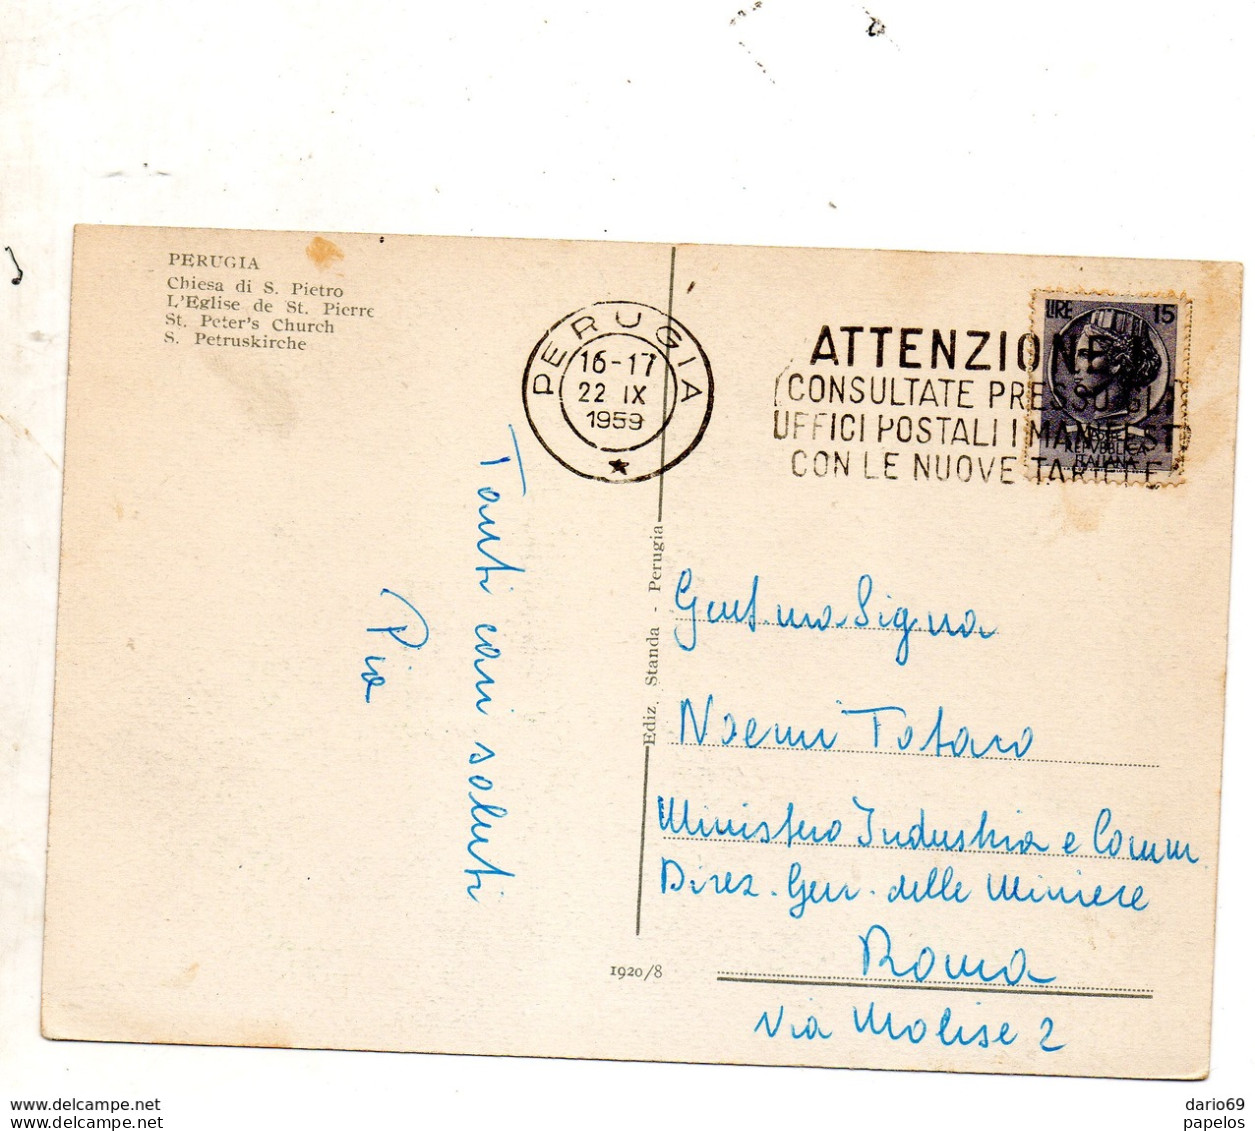 PERUGIA
Chiesa di S. Pietro
L'Eglise de St. Pierre
St. Peter's Church
S. Petruskirche
PERUGIA
16-17
22 IX
1959
ATTENZIONE
CONSULTATE PRESSO GLI
UFFICI POSTALI I MANIFESTI
CON LE NUOVE TARIFFE
LIRE 15
REPVBBLICA
ITALIANA
Tanti cari saluti
Pia
Ediz. Standa - Perugia
Gent.ma Signa
Noemi Totaro
Ministero Industria e Comm
Direz. Gen. delle Miniere
Roma
Via Molise 2
1920/8
www.delcampe.net
www.delcampe.net
dario69
papelos